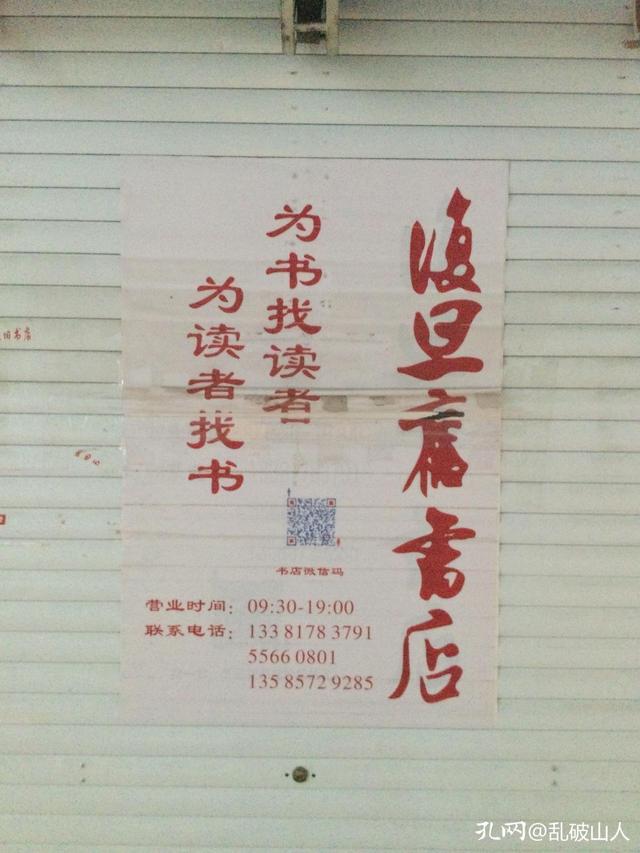 復旦舊書店
为书找读者
为读者找书
书店微信码
营业时间：09:30-19:00
联系电话：133 8178 3791
5566 0801
135 8572 9285
孔网@乱破山人